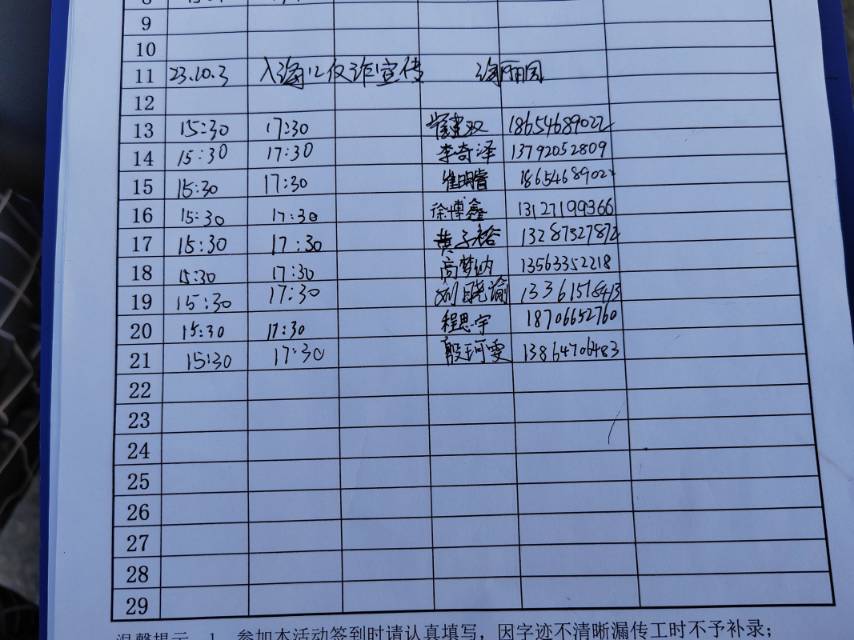 8
9
10
11 23.10.3 反诈宣传
12
13 15:30 17:30 18654689022
14 15:30 17:30 李奇泽 13792052809
15 15:30 17:30 崔明睿 1865468902
16 15:30 17:30 徐博鑫 13127199366
17 15:30 17:30 黄子裕 13287527872
18 15:30 17:30 高梦纳 13563352218
19 15:30 17:30 刘晓谕
20 15:30 17:30 程思宇 18706652760
21 15:30 17:30 殷珂雯 13864706483
22
23
24
25
26
27
28
29
温馨提示 1、参加本活动签到时请认真填写，因字迹不清晰漏传工时不予补录；